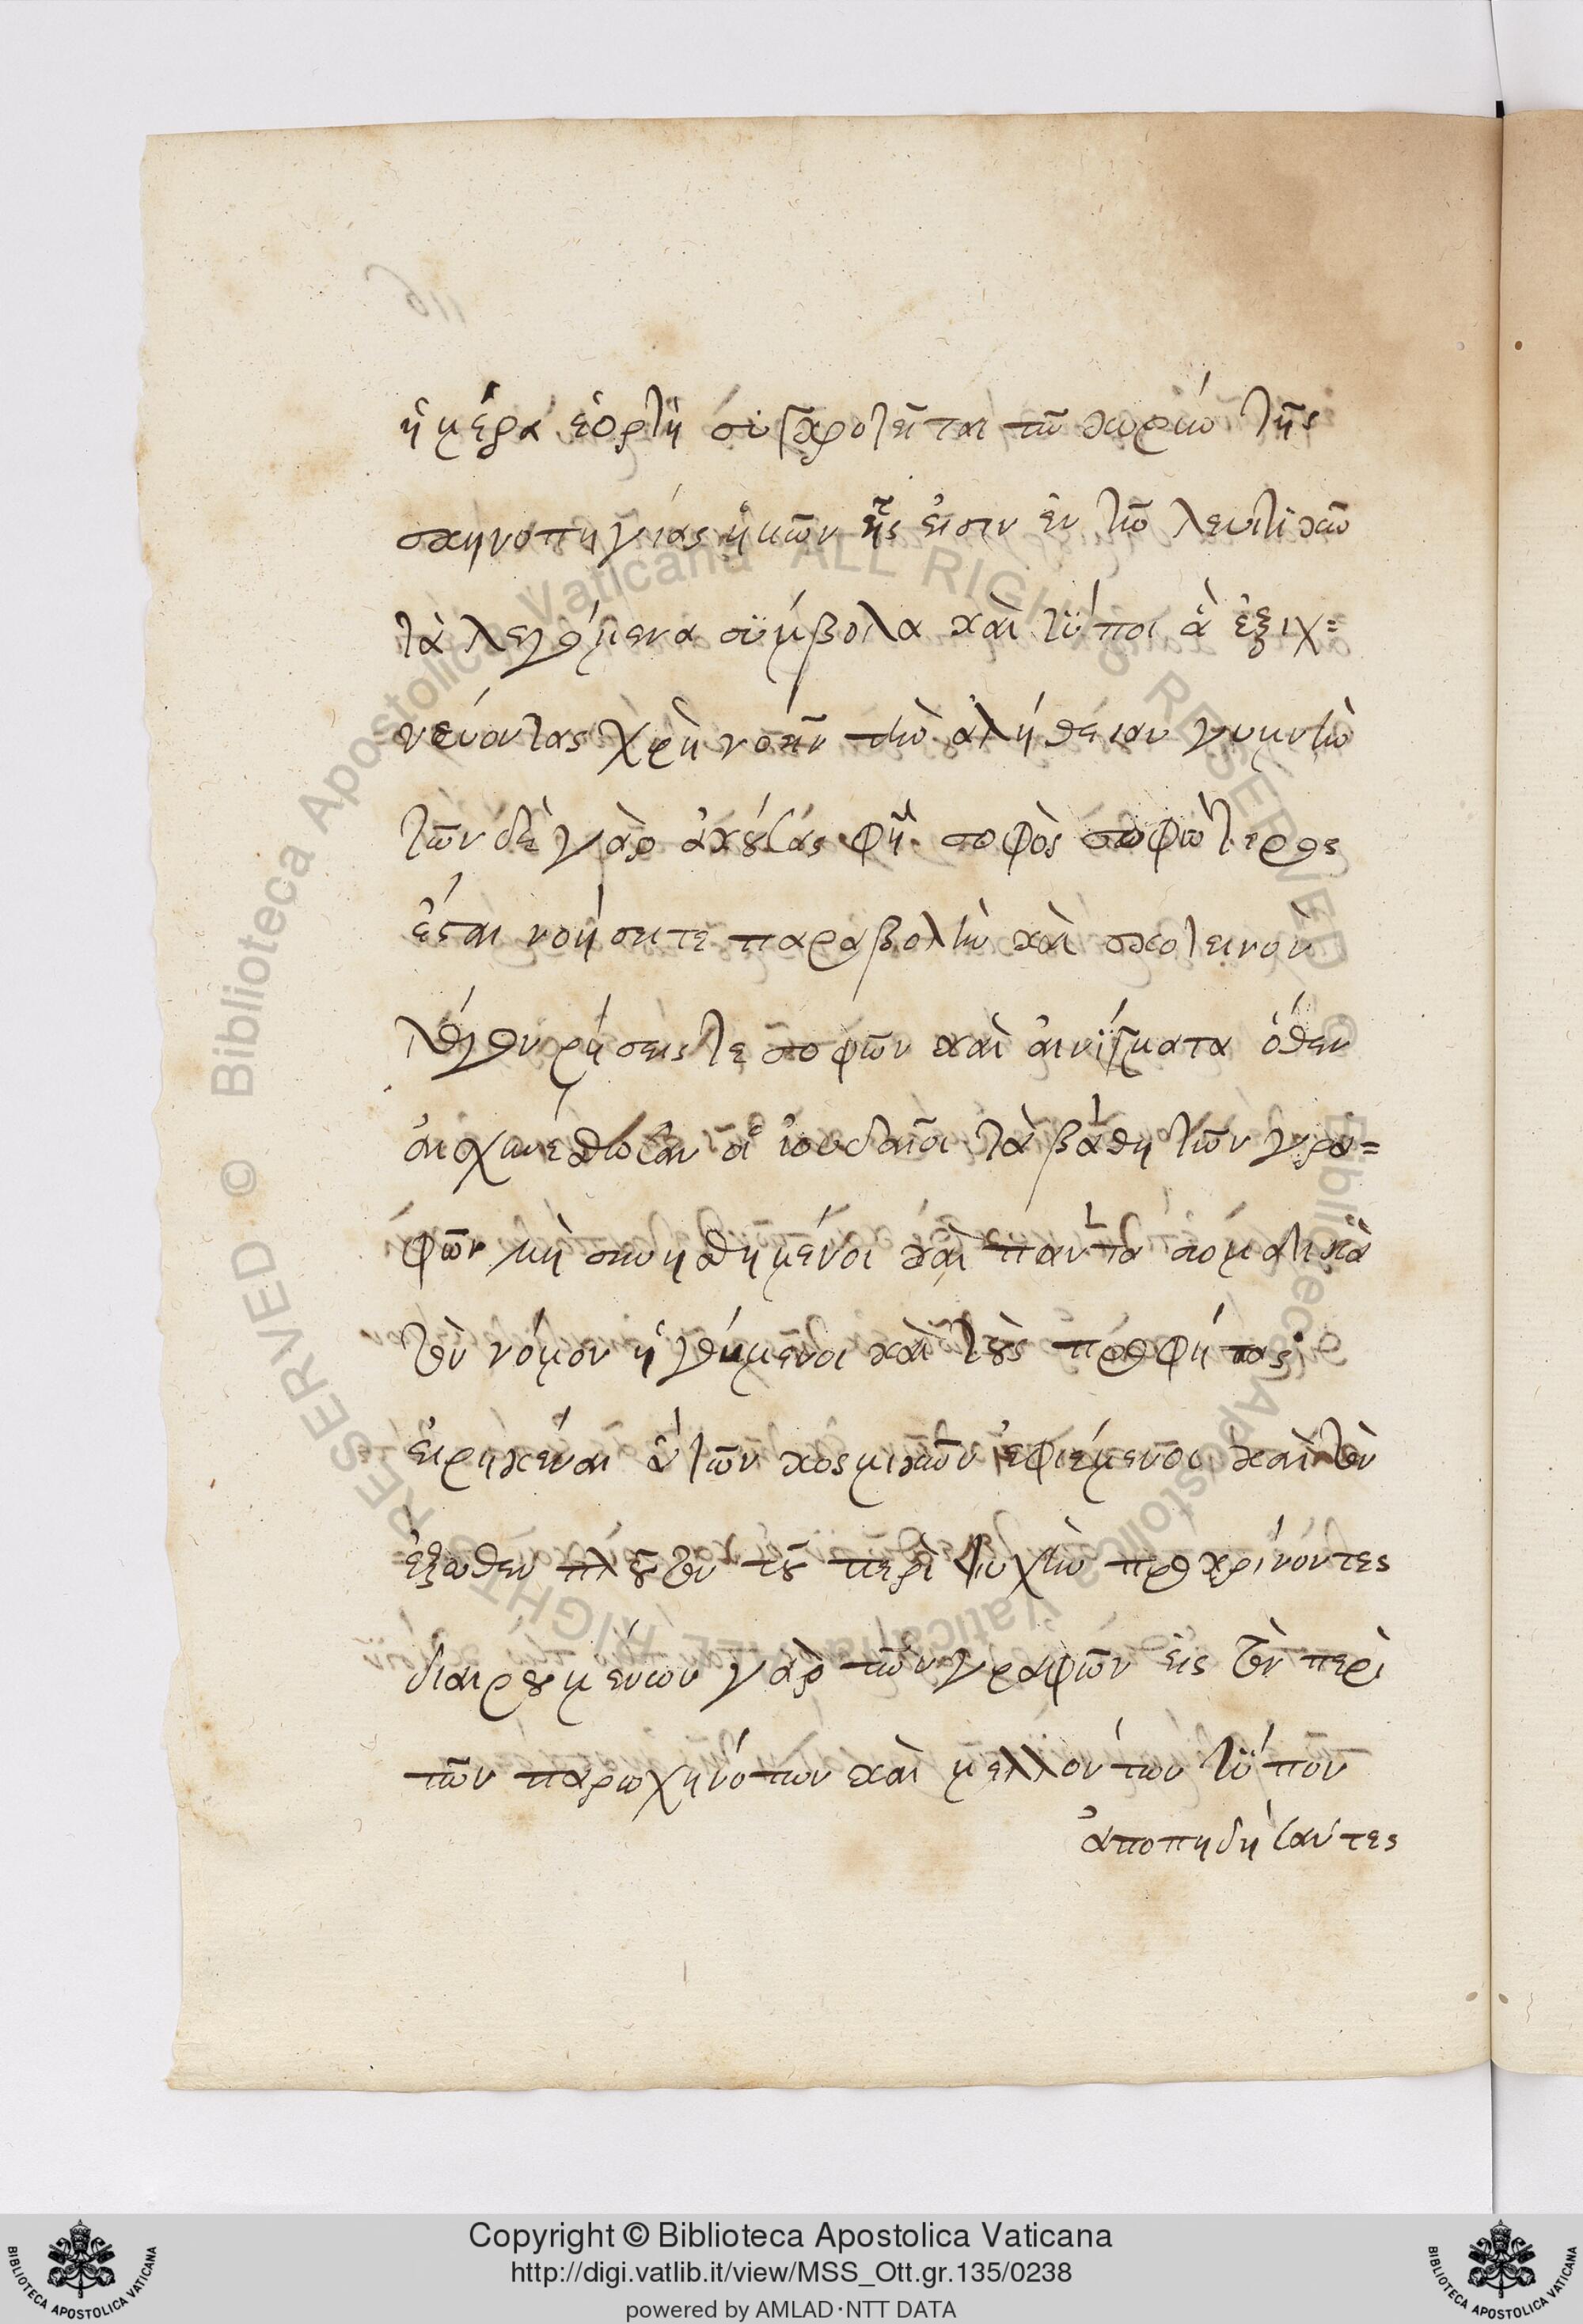 ἡμέρα ἑορτὴ συγκροτεῖται τῶ κυρίω τῆς
σκηνοπηγίας ἡμῶν ἧς εἰσιν ἐν τῶ λευϊτικῶ
τὰ λεγόμενα σύμβολα καὶ τύποι ἃ ἐξιχ=
νεύοντας χρὴ νοεῖν τὴν ἀλήθειαν γυμνὴν
τῶν δὲ γὰρ ἀκούσας φη. σοφὸς σοφώτερος
ἔσται νοήσει τε παραβολὴν καὶ σκοτεινὸν
λόγον ῥήσεις τε σοφῶν καὶ αἰνίγματα ὅθεν
αἰσχυνέσθωσαν οἱ ἰουδαῖοι τὰ βάθη τῶν γρα=
φῶν μὴ συνηθημένοι καὶ πάντα σωματικὰ
τὸν νόμον ἡγούμενοι καὶ τοὺς προφήτας
εἰρηκέναι ἀεὶ τῶν κοσμικῶν ἐφιέμενοι καὶ τὸν
ἔξωθεν πλοῦτον τοῦ περὶ ψυχὴν προκρίνοντες
διαιρουμένων γὰρ τῶν γραφῶν εἰς τὸν περὶ
τῶν παρωχηκότων καὶ μελλόντων τύπον
ἀποπηδήσαντες
Copyright © Biblioteca Apostolica Vaticana
http://digi.vatlib.it/view/MSS_Ott.gr.135/0238
powered by AMLAD·NTT DATA